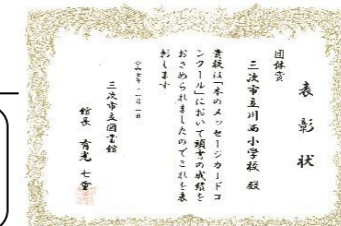 表彰状
団体賞
三次市立川西小学校 殿
貴校は「本のメッセージカードコ
ンクール」において頭書の成績を
おさめられましたのでこれを表
彰します
三次市立図書館
館長